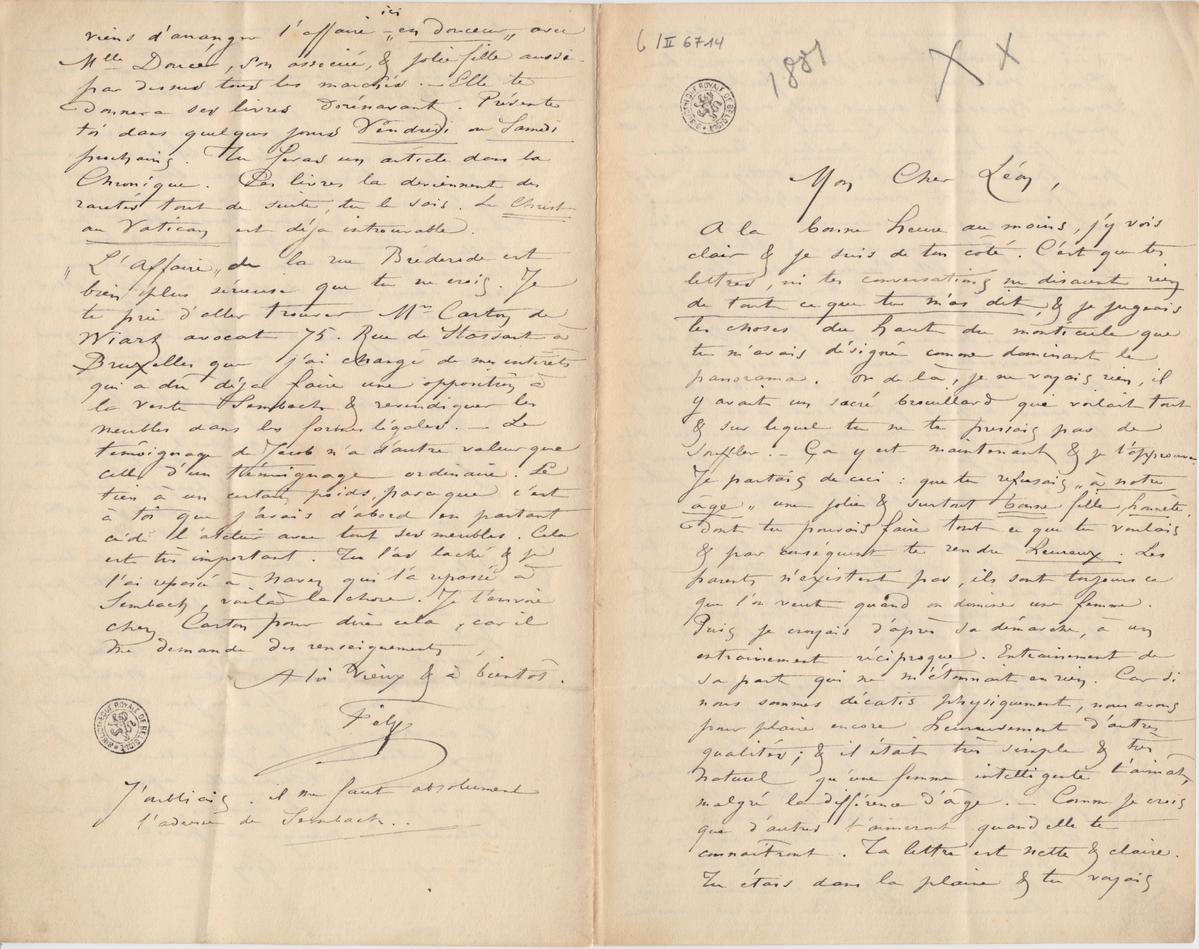 6 / II 6714
1881
X X
BIBLIOTHEQUE ROYALE DE BELGIQUE
Mon Cher Léon,
A la bonne heure au moins, j'y vois
clair & je suis de ton côté. C'est que tes
lettres, ni tes conversations ne disaient rien
de tout ce que tu m'as dit, & je jugeais
les choses du haut du monticule que
tu m'avais désigné comme dominant le
panorama. Or de là, je ne voyais rien, il
y avait un sacré brouillard qui voilait tout
& sur lequel tu ne te pressais pas de
souffler. - Ça y est maintenant & je t'approuve.
Je partais de ceci : que tu refusais "à notre
âge" une jolie & surtout bonne fille, honnête,
dont tu pouvais faire tout ce que tu voulais
& par conséquent te rendre heureux. Les
parents n'existent pas, ils sont toujours ce
que l'on veut quand on domine une femme.
Puis je croyais d'après sa démarche, à un
entrainement réciproque. Entrainement de
sa part qui ne m'étonnait en rien. Car si
nous sommes décatis physiquement, nous avons
pour plaire encore heureusement d'autres
qualités; & il était très simple & très
naturel qu'une femme intelligente t'aimât,
malgré la différence d'âge. - Comme je crois
que d'autres t'aimeront quand elle te
connaîtront. Ta lettre est nette & claire.
Tu étais dans la plaine & tu voyais
viens d'arranger l'affaire ici "en douceur" avec
Mlle Doucé, son associée, & jolie fille aussi
par dessus tous les marchés. - Elle te
donnera ses livres dorénavant. Présente
toi dans quelques jours Vendredi ou Samedi
prochains. Tu feras un article dans la
Chronique. Ces livres la deviennent des
raretés tout de suite, tu le sais. Le Christ
au Vatican est déja introuvable.
"L'Affaire" de la rue Bréderode est
bien plus sérieuse que tu ne crois. Je
te prie d'aller trouver Mr Carton de
Wiart avocat 75. Rue de Stassart à
Bruxelles que j'ai chargé de mes intérêts
qui a dû déja faire une opposition à
la vente Sembach & revendiquer les
meubles dans les formes légales. - Le
témoignage de Jacob n'a d'autre valeur que
celle d'un témoignage ordinaire. Le
tien à un certain poids, parceque c'est
à toi que j'avais d'abord en partant
cédé l'atelier avec tout ses meubles. Cela
est très important. Tu l'as laché & je
l'ai repassé à Navez qui l'a repassé à
Sembach, voilà la chose. Je t'envoie
chez Carton pour dire cela, car il
me demande des renseignements.
A toi Vieux & à bientôt.
Fély
BIBLIOTHEQUE ROYALE DE BELGIQUE
J'oubliais. il me faut absolument
l'adresse de Sembach..